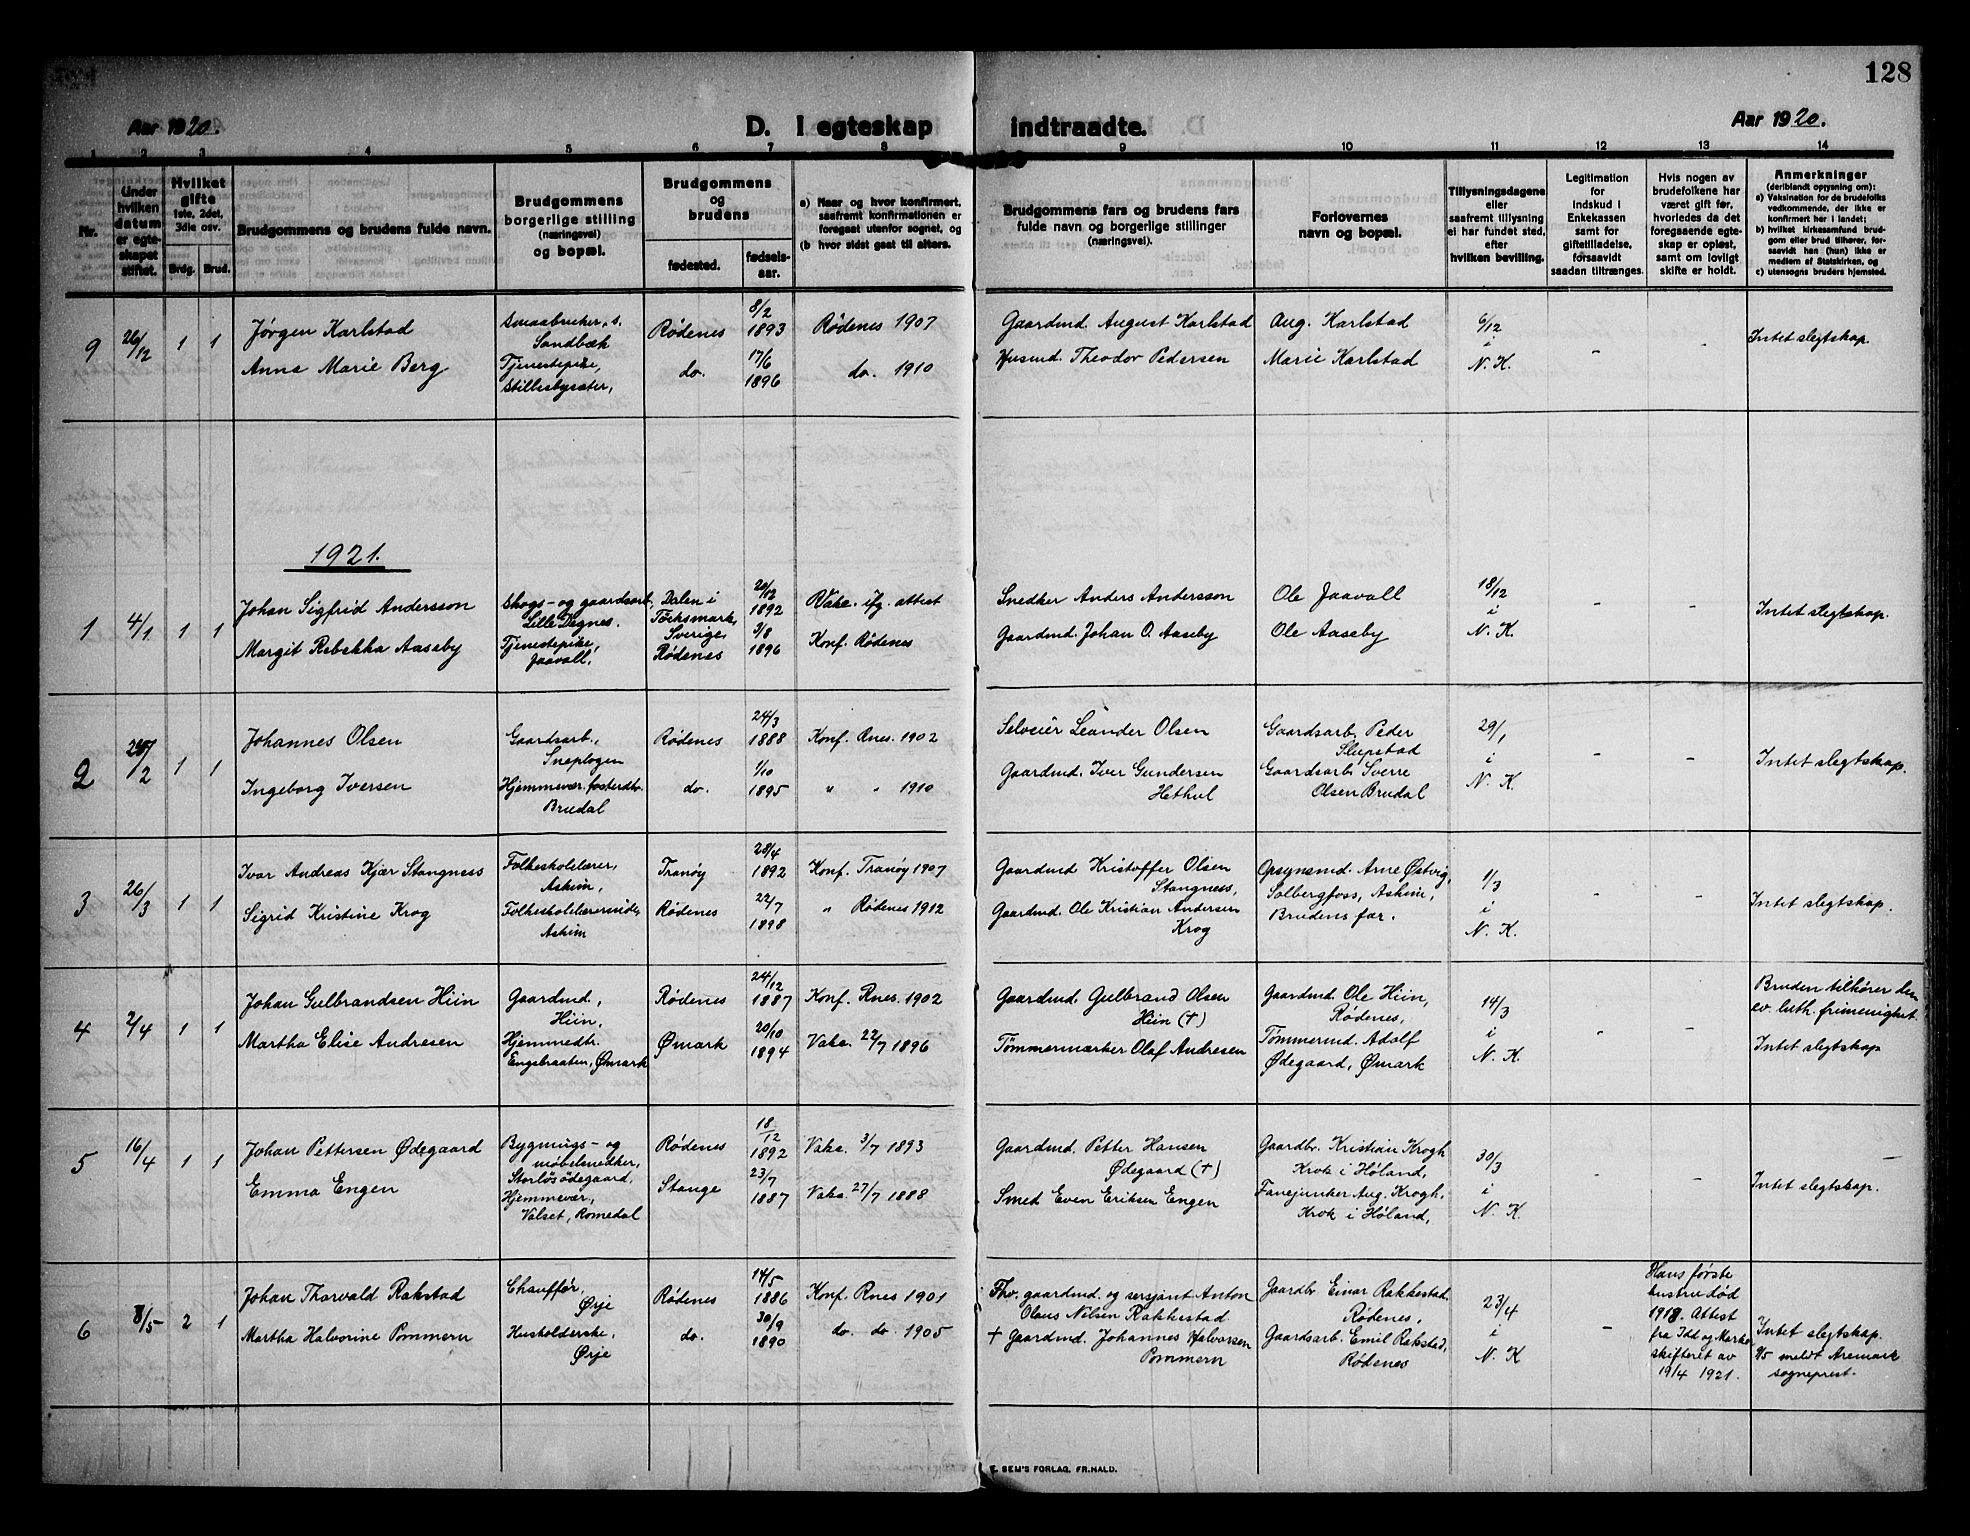 128
Aar 1920.
D. I egteskap indtraadte.
Aar 1920.
1 2 3 4 5 6 7 8 9 10 11 12 13 14
Nr.
Under hvilken datum er egteskapet stiftet.
Hvilket gifte 1ste, 2det, 3die osv.
Brdg. Brud.
Brudgommens og brudens fulde navn.
Brudgommens borgerlige stilling (næringsvei) og bopæl.
Brudgommens og brudens
fødested.
fødselsaar.
a) Naar og hvor konfirmert, saafremt konfirmationen er foregaat utenfor sognet, og
(b hvor sidst gaat til alters.
Brudgommens fars og brudens fars fulde navn og borgerlige stillinger (næringsvei).
Forlovernes navn og bopæl.
Tillysningsdagene eller saafremt tillysning ei har fundet sted, efter hvilken bevilling.
Legitimation for indskud i Enkekassen samt for giftetilladelse, forsaavidt saadan tiltrænges.
Hvis nogen av brudefolkene har været gift før, hvorledes da det foregaaende egteskap er opløst, samt om lovligt skifte er holdt.
Anmerkninger (deriblandt opysning om):
a) Vaksination for de brudefolks vedkommende, der ikke er konfirmert her i landet;
b) hvilket kirkesamfund brudgom eller brud tilhører, forsaavidt han (hun) ikke er medlem af Statskirken, og
c) utensogns bruders hjemsted.
9 26/12 1 1
Jørgen Karlstad
Smaabruker, s. Sandbæk
Rødenes
8/2 1893
Rødenes 1907
Gaardmd. August Karlstad
Aug. Karlstad
6/12 i N. K.
-
-
Intet slegtskap.
Anna Marie Berg
Tjenestepike, Stillesbysæter,
do.
17/6 1896
do. 1910
Husmd. Theodor Pedersen
Marie Karlstad
1921.
1 4/1 1 1
Johan Sigfrid Andersson
Skogs- og gaardsarb. Lille Degnes.
Dalen i Töcksmark, Sverige,
20/12 1892
Vakc. ifg. attest
Snedker Anders Andersson
Ole Jaavall
18/12 i N. K.
-
-
Intet slegtskap.
Margit Rebekka Aaseby
Tjenestepike, Jaavall.
Rødenes
3/8 1896
Konf. Rødenes
Gaardmd. Johan O. Aaseby
Ole Aaseby
2 /2 1 1
Johannes Olsen
Gaardsarb., Sneplogen
Rødenes
24/3 1888
Konf. Rnes. 1902
Selveier Leander Olsen
Gaardsarb. Peder Slupstad
29/1 i N. K.
-
-
Intet slegtskap.
Ingeborg Iversen
Hjemmevær. fosterdtr. Brudal
do.
1/10 1895
" " 1910
Gaardmd. Iver Gundersen Hethul
Gaardsarb. Sverre Olsen Brudal
3 26/3 1 1
Ivar Andreas Kjær Stangness
Folkeskolelærer, Askim,
Tranøy
28/4 1892
Konf. Tranøy 1907
Gaardmd Kristoffer Olsen Stangness,
Opsynsmd. Arne Østvig, Solbergfoss, Askim,
1/3 i N. K.
-
-
Intet slegtskap.
Sigrid Kristine Krog
Folkeskolelærerinde, Askim
Rødenes
22/7 1898
" Rødenes 1912
Gaardmd. Ole Kristian Andersen Krog
Brudens far.
4 2/4 1 1
Johan Gulbrandsen Hiin
Gaardmd, Hiin,
Rødenes
24/12 1887
Konf. Rnes. 1902
Gaardmd. Gulbrand Olsen Hiin (+)
Gaardmd. Ole Hiin, Rødenes,
14/3 i N. K.
-
-
Bruden tilhører den ev. luth. frimenighet.
Intet slegtskap
Martha Elise Andresen
Hjemmedtr. Engsbraaten, Ømark
Ømark
20/10 1894
Vakc. 22/7 1896
Tømmermærker Olaf Andresen
Tømmermd. Adolf Ødegaard, Ømark
5 16/4 1 1
Johan Pettersen Ødegaard
Bygnings- og møbelsnedker, Storløsødegaard,
Rødenes
18/12 1892
Vakc. 3/7 1893
Gaardmd. Petter Hansen Ødegaard (+)
Gaardbr. Kristian Krogh Krok i Høland,
30/3 i N. K.
-
-
Intet slegtskap.
Emma Engen
Hjemmevær, Valset, Romedal
Stange
23/7 1887
Vakc. 27/7 1888
Smed Even Eriksen Engen
Fanejunker Aug. Krogh, Krok i Høland,
6 8/5 2 1
Johan Thorvald Rakstad
Chauffør, Ørje
Rødenes
14/5 1886
Konf. Rnes 1901
Fhv. gaardmd. og sersjant Anton Olaus Nilsen Rakkestad
Gaardbr. Einar Rakkestad. Rødenes,
23/4 i N. K
-
Hans første hustru død 1918. Attest fra Idd og Marker skifteret av 19/4 1921.
Intet slegtskap.
9/5 meldt Aremark sogneprest.
Martha Halvorine Pommern
Husholderske, Ørje
do.
30/9 1890
do. do. 1905
+ Gaardmd. Johannes Halvorsen Pommern
Gaardsarb. Emil Rakstad, Rødenes
E. SEM'S FORLAG, FR.HALD.